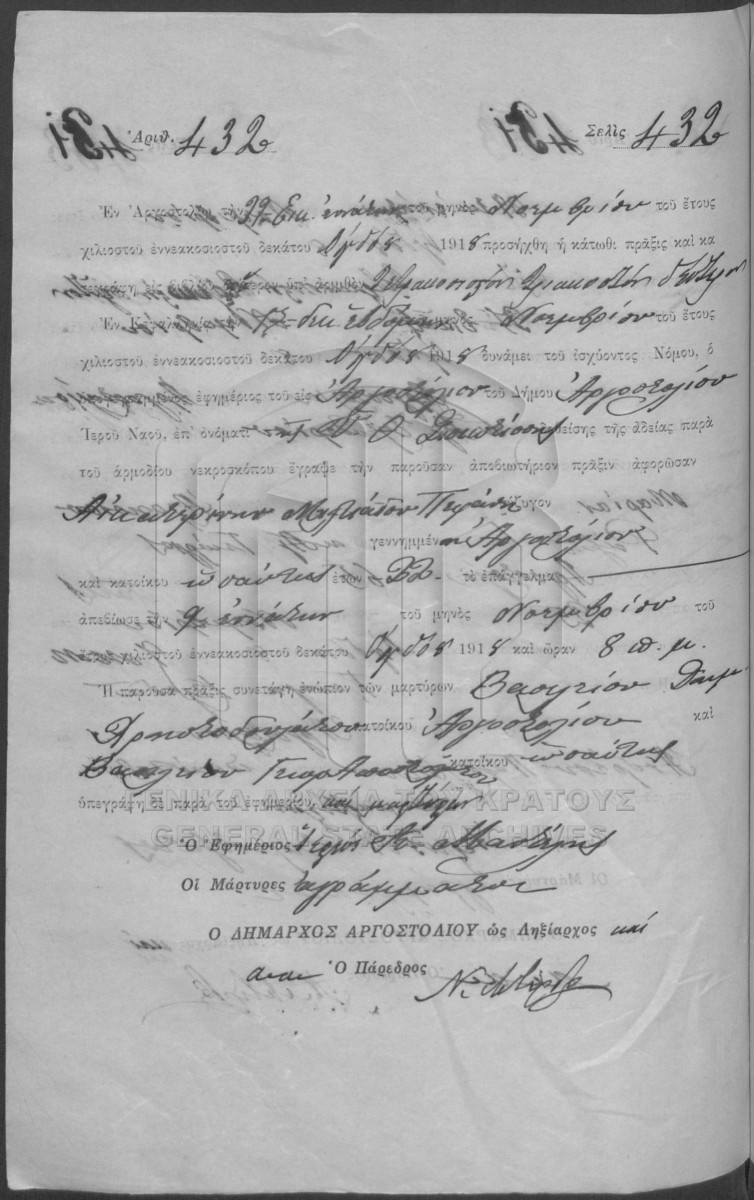 Ἀριθ. 432 Σελὶς 432
Ἐν Ἀργοστολίῳ τὴν 29 Εικ. ἐνάτην τοῦ μηνὸς Νοεμβρίου τοῦ ἔτους
χιλιοστοῦ ἐννεακοσιοστοῦ δεκάτου ὀγδόου 1918 προσήχθη ἡ κάτωθι πρᾶξις καὶ κα
τεγράφη εἰς βιβλίον ὑπ' ἀριθμὸν τετρακοσιοστὸν τριακοστὸν δεύτερον
Ἐν Κεφαλληνίᾳ τὴν 17 δεκ ἑβδόμην τοῦ μηνὸς Νοεμβρίου τοῦ ἔτους
χιλιοστοῦ ἐννεακοσιοστοῦ δεκάτου ὀγδόου 1918 δυνάμει τοῦ ἰσχύοντος Νόμου, ὁ
ἐφημέριος τοῦ εἰς Ἀργοστόλιον τοῦ Δήμου Ἀργοστολίου
Ἱεροῦ Ναοῦ, ἐπ' ὀνόματι τῆς Υ. Θ. Σισσιώτισσης δοθείσης τῆς ἀδείας παρὰ
τοῦ ἁρμοδίου νεκροσκόπου ἔγραψε τὴν παροῦσαν ἀποβιωτήριον πρᾶξιν ἀφορῶσαν
Αἰκατερίνην Μιλτιάδου σύζυγον
γεννημμέν ην Ἀργοστόλιον
καὶ κατοίκου ὡσαύτως ἐτῶν τὸ ἐπάγγελμα
ἀπεβίωσε τὴν 9 ἐνάτην τοῦ μηνὸς Νοεμβρίου τοῦ
χιλιοστοῦ ἐννεακοσιοστοῦ δεκάτου ὀγδόου 1918 καὶ ὥραν 8 π. μ.
Ἡ παροῦσα πρᾶξις συνετάγη ἐνώπιον τῶν μαρτύρων Βασιλείου Δημ.
Χρηστοδουλάτου κατοίκου Ἀργοστολίου καὶ
Βασιλείου Γεωρ Αποστολάτου κατοίκου ὡσαύτως
ὑπεγράφη δὲ παρὰ τοῦ ἐφημερίου καὶ μαρτύρων
ΓΕΝΙΚΑ ΑΡΧΕΙΑ ΤΟΥ ΚΡΑΤΟΥΣ
GENERAL STATE ARCHIVES
Ὁ Ἐφημέριος Ἱερεὺς
Οἱ Μάρτυρες ἀγράμματοι
Ο ΔΗΜΑΡΧΟΣ ΑΡΓΟΣΤΟΛΙΟΥ ὡς Ληξίαρχος καὶ
αυα Ὁ Πάρεδρος